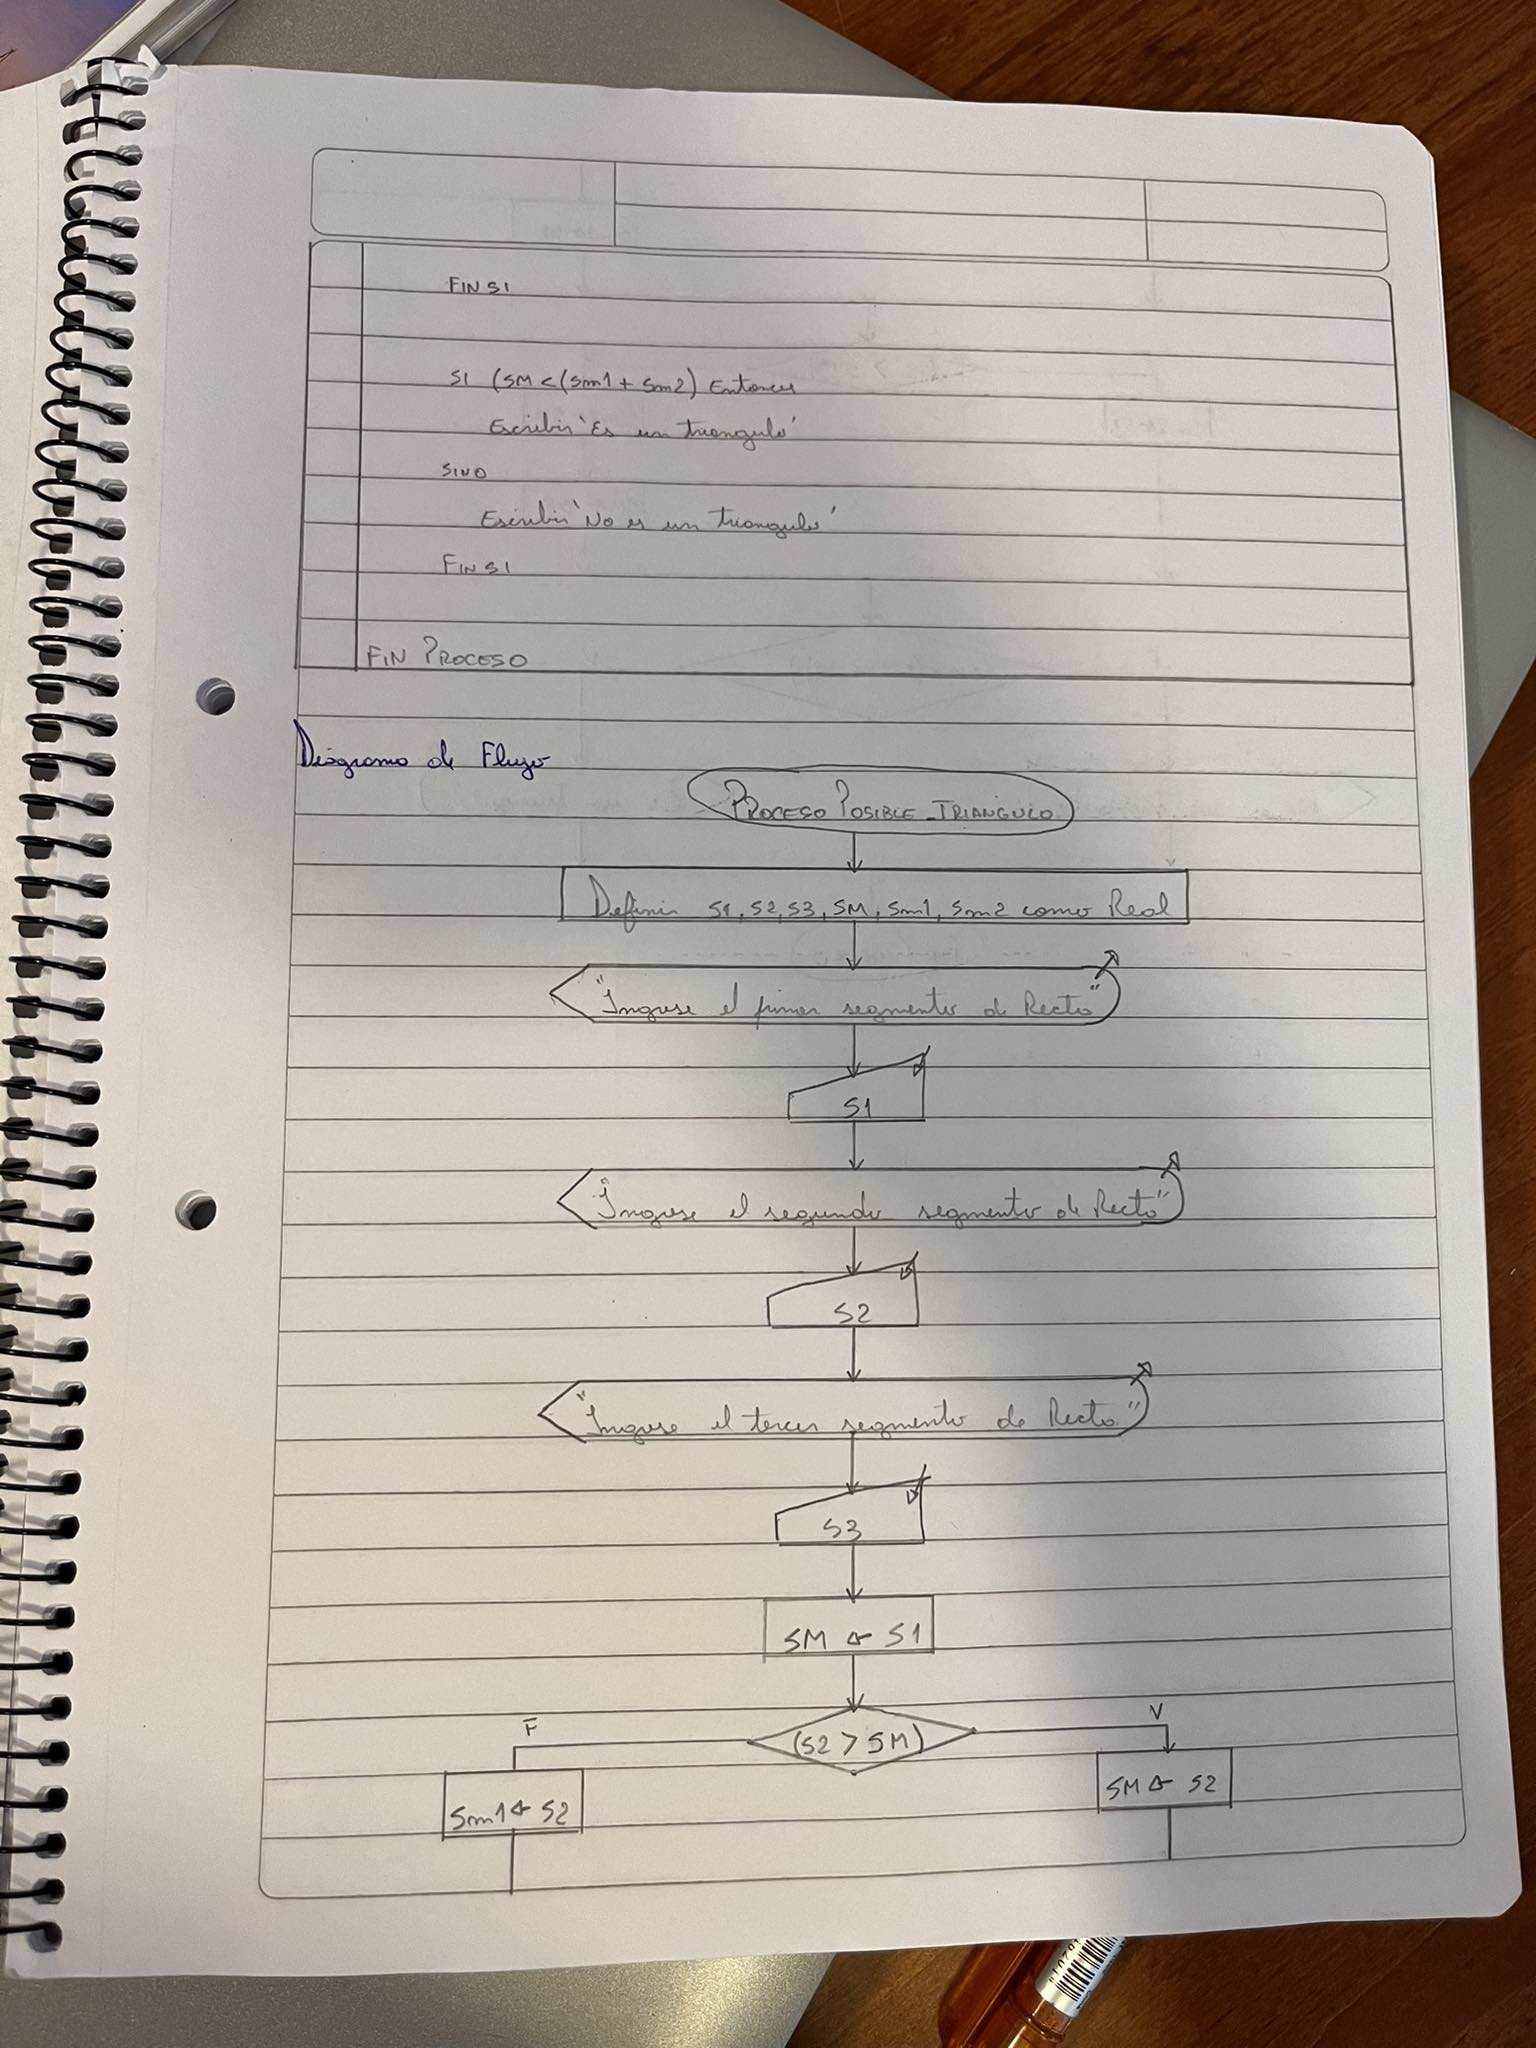 FIN SI
SI (SM < (Sm1 + Sm2) Entonces
Escribir 'Es un triangulo'
SINO
Escribir 'No es un triangulo'
FIN SI
FIN PROCESO
Diagrama de Flujo
PROCESO POSIBLE_TRIÁNGULO
Definir S1, S2, S3, SM, Sm1, Sm2 como Real
"Ingrese el primer segmento de Recta"
S1
"Ingrese el segundo segmento de Recta"
S2
"Ingrese el tercer segmento de Recta"
S3
SM ← S1
F
V
(S2 > SM)
Sm1 ← S2
SM ← S2